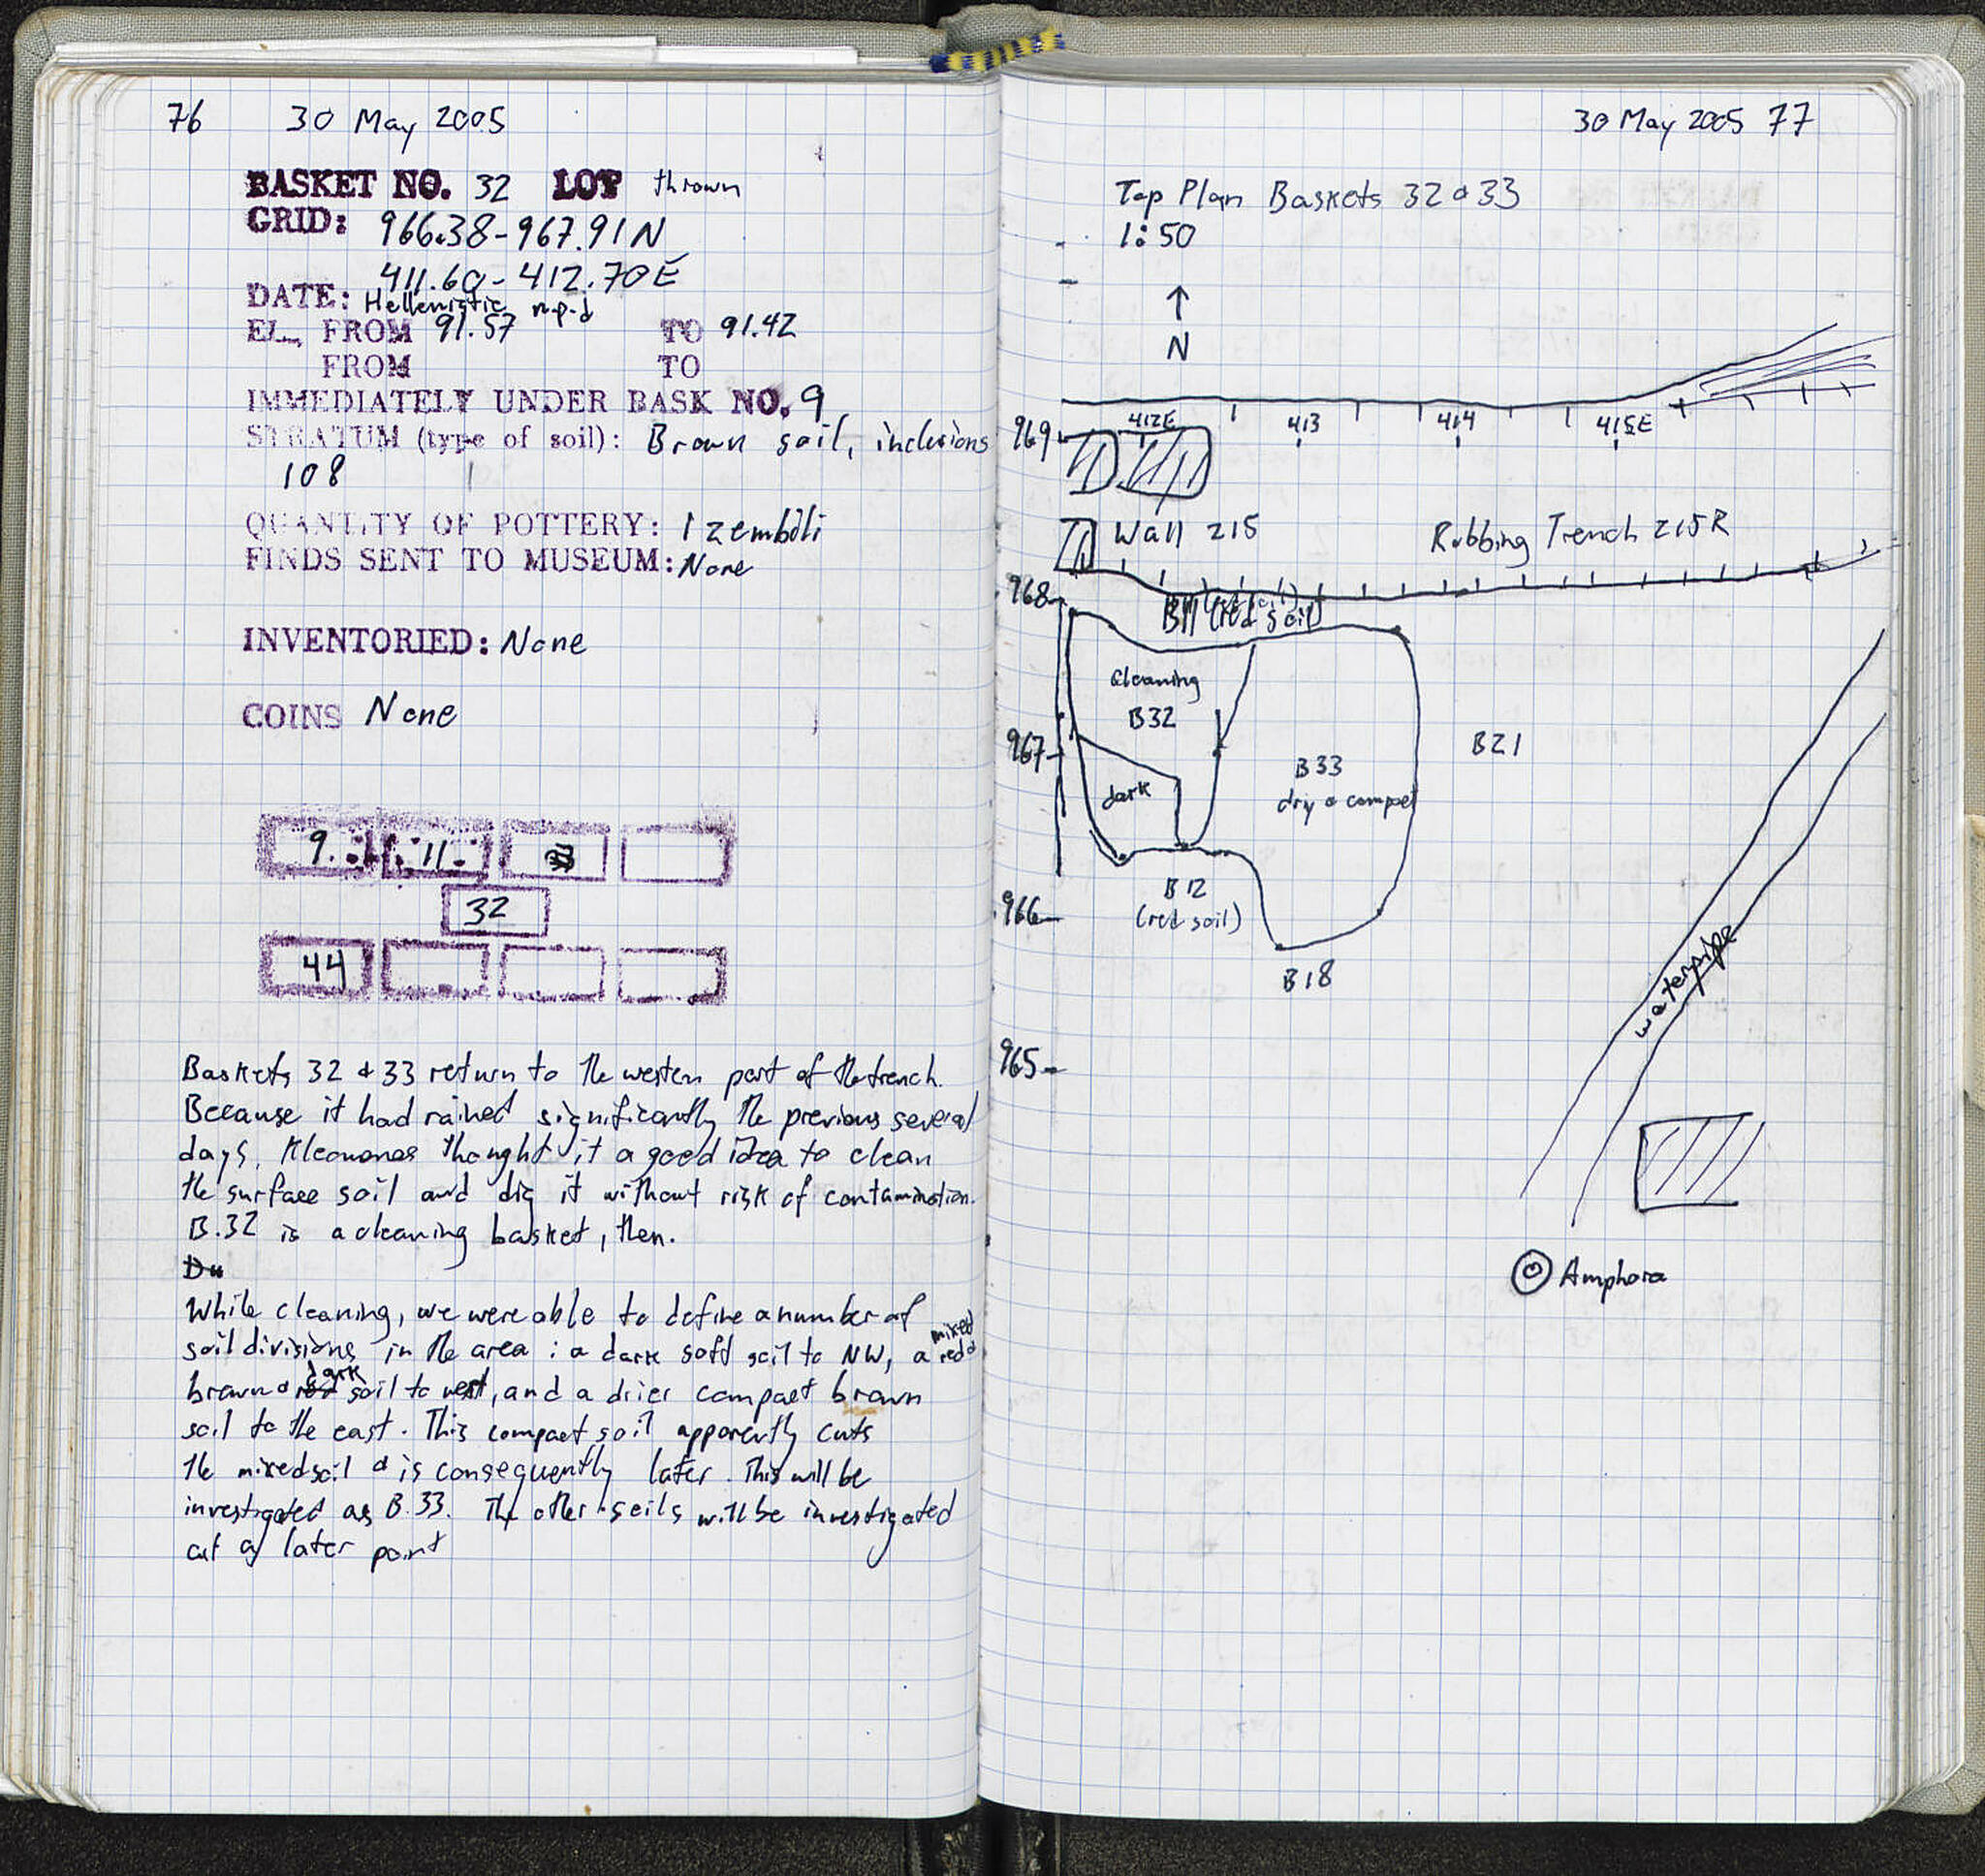 76 30 May 2005
BASKET NO. 32 LOT thrown
GRID: 966.38-967.91N
411.60-412.70E
DATE: Hellenistic n.p.d
EL. FROM 91.57 TO 91.42
FROM TO
IMMEDIATELY UNDER BASK NO. 9
STRATUM (type of soil): Brown soil, inclusions
108
QUANTITY OF POTTERY: 1 zembili
FINDS SENT TO MUSEUM: None
INVENTORIED: None
COINS None
9. 11.
32
44
Baskets 32 & 33 return to the western part of the trench.
Because it had rained significantly the previous several
days, Kleomones thought it a good idea to clean
the surface soil and dig it without risk of contamination.
B.32 is a cleaning basket, then.
Du
While cleaning, we were able to define a number of
soil divisions in the area : a dark soft soil to NW, a mixed red &
brown & dark soil to west, and a drier compact brown
soil to the east. This compact soil apparently cuts
the mixed soil & is consequently later. This will be
investigated as B.33. The other soils will be investigated
at a later point
30 May 2005 77
Top Plan Baskets 32 & 33
1:50
N
969 412E 413 414 415E
Wall 215 Robbing Trench 215R
968 B11 (red soil)
Cleaning
B32
967 B21
B33
dry & compact
dark
B12
(red soil)
966
B18
waterpipe
965
Amphora